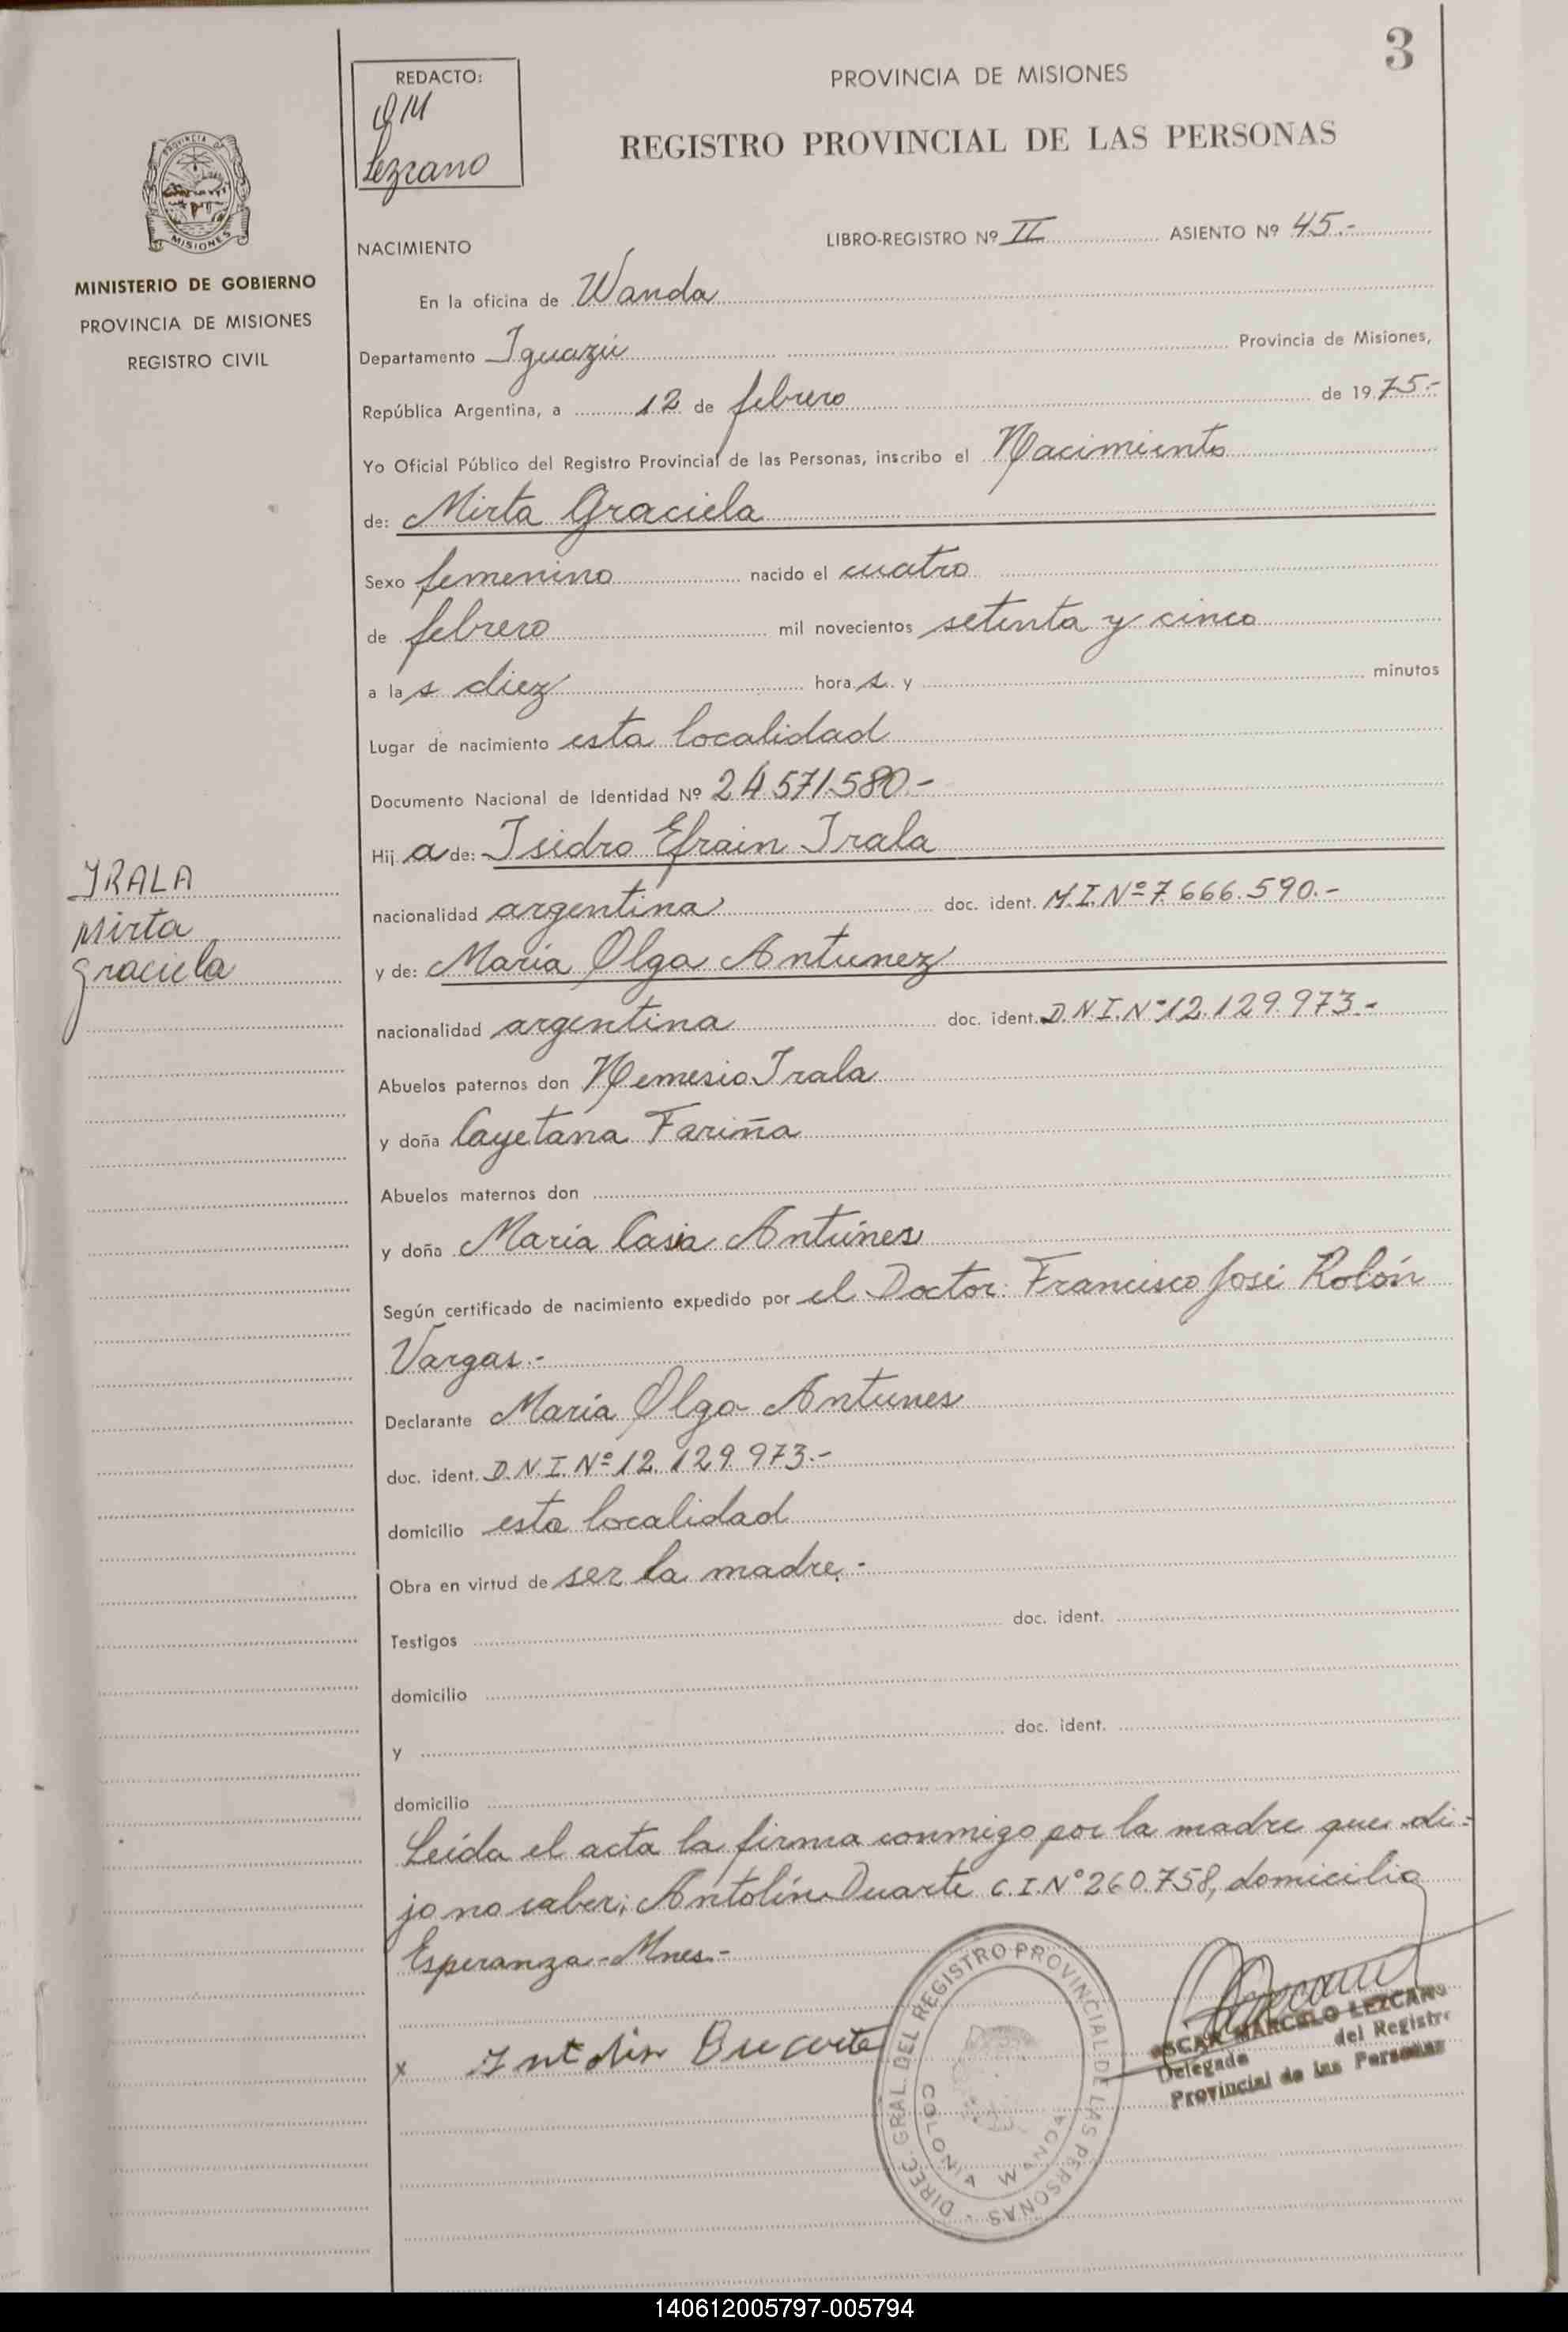 3
REDACTO:
OM
Lezcano
PROVINCIA DE MISIONES
REGISTRO PROVINCIAL DE LAS PERSONAS
PROVINCIA
MISIONES
MINISTERIO DE GOBIERNO
PROVINCIA DE MISIONES
REGISTRO CIVIL
NACIMIENTO
LIBRO-REGISTRO Nº II ASIENTO Nº 45.-
En la oficina de Wanda
Departamento Iguazú Provincia de Misiones,
República Argentina, a 12 de febrero de 1975.-
Yo Oficial Público del Registro Provincial de las Personas, inscribo el Nacimiento
de: Mirta Graciela
Sexo femenino nacido el cuatro
de febrero mil novecientos setenta y cinco
a las diez horas y minutos
Lugar de nacimiento esta localidad
Documento Nacional de Identidad Nº 24.571.580.-
Hija de: Isidro Efrain Irala
IRALA
Mirta
Graciela
nacionalidad argentina doc. ident. M.I.Nº 7.666.590.-
y de: Maria Olga Antunez
nacionalidad argentina doc. ident. D.N.I.Nº 12.129.973.-
Abuelos paternos don Nemesio Irala
y doña Cayetana Fariña
Abuelos maternos don
y doña María Casia Antúnes
Según certificado de nacimiento expedido por el Doctor: Francisco José Rolón
Vargas.-
Declarante María Olga Antunes
doc. ident. D.N.I.Nº 12.129.973.-
domicilio esta localidad
Obra en virtud de ser la madre.-
Testigos doc. ident.
domicilio
y doc. ident.
domicilio
Leída el acta la firma conmigo por la madre que di-
jo no saber; Antolín Duarte C.I.Nº 260.758, domicilio
Esperanza-Mnes.-
x Antolin Duarte
DIREC. GRAL. DEL REGISTRO PROVINCIAL DE LAS PERSONAS
COLONIA WANDA
OSCAR MARCELO LEZCANO
Delegado del Registro
Provincial de las Personas
140612005797-005794